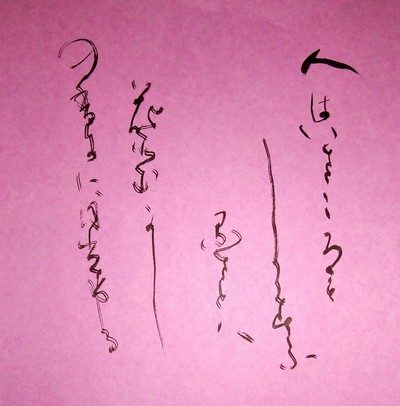 人はいさこゝろも
しらす
ふるさとは
花そむかし
のかににほひける